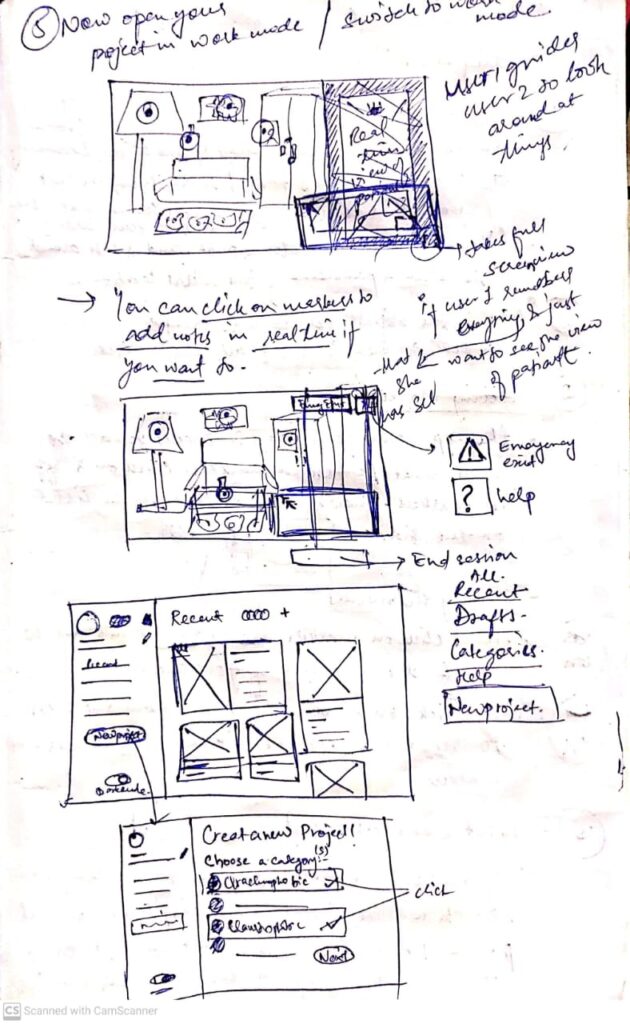 ⑤ Now open your
project in work mode / switch to work
mode.
User 1 guides
user 2 to look
around at
things.
Real
time
view of
patient
→ takes full
screenview
if user 1 remembers
everything & just
want to see the view
of patient.
→ You can click on markers to
add notes in real time if
you want to.
that
she
has set
Emergency
exit
? help
→ End session
All
Recent
Drafts
Categories
Help
New project
Recent +
Recent
New project
Create a new Project!
Choose a category(s):-
Arachnophobic ✓
Claustrophobic ✓
click
Next
CS Scanned with CamScanner